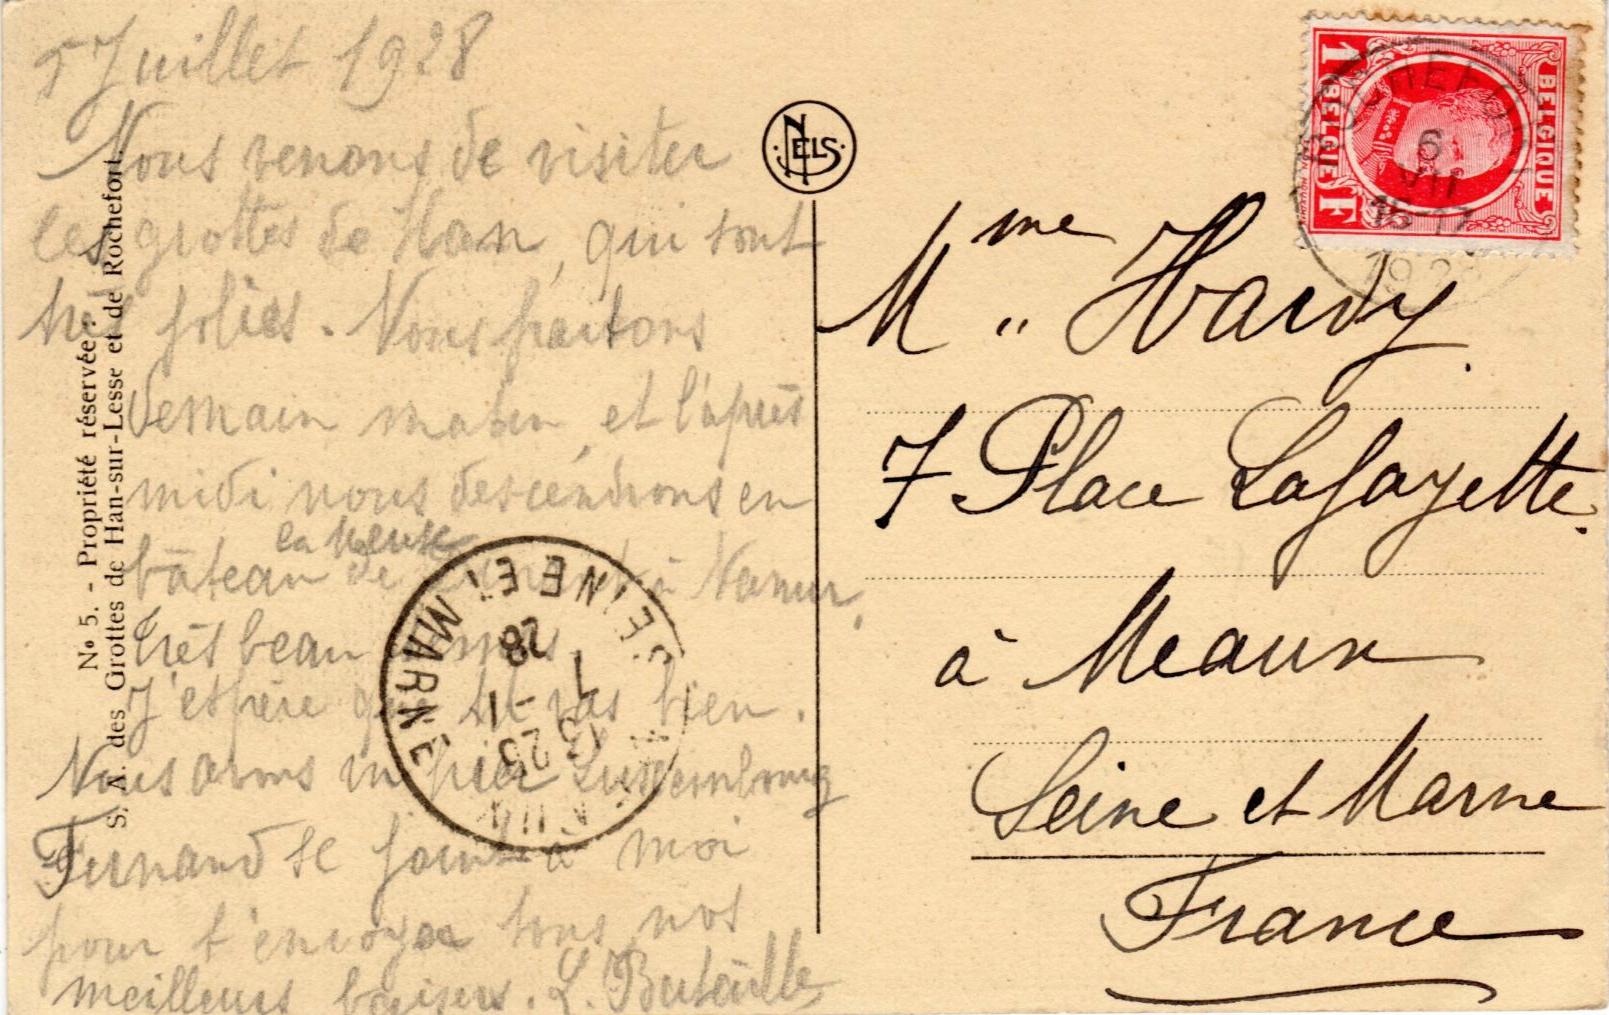 5 Juillet 1928
Nous venons de visiter
les grottes de Han, qui sont
très jolies. Nous partons
demain matin, et l'après
midi nous descendrons en
la Meuse
bâteau de Dinant à Namur.
très beau temps.
J'espère que tu vas bien.
Nous avons vu hier Luxembourg
Fernand se joint à moi
pour t'envoyer tous nos
meilleurs baisers. L. Butaille
N° 5. - Propriété réservée :
S. A. des Grottes de Han-sur-Lesse et de Rochefort.
NELS
BELGIQUE
BELGIE
1 F
ROCHEFORT
6
VII
16-17
1928
SEINE ET MARNE
13 25
7 - 1
28
Mme Hardy.
7 Place Lafayette.
à Meaux
Seine et Marne
France